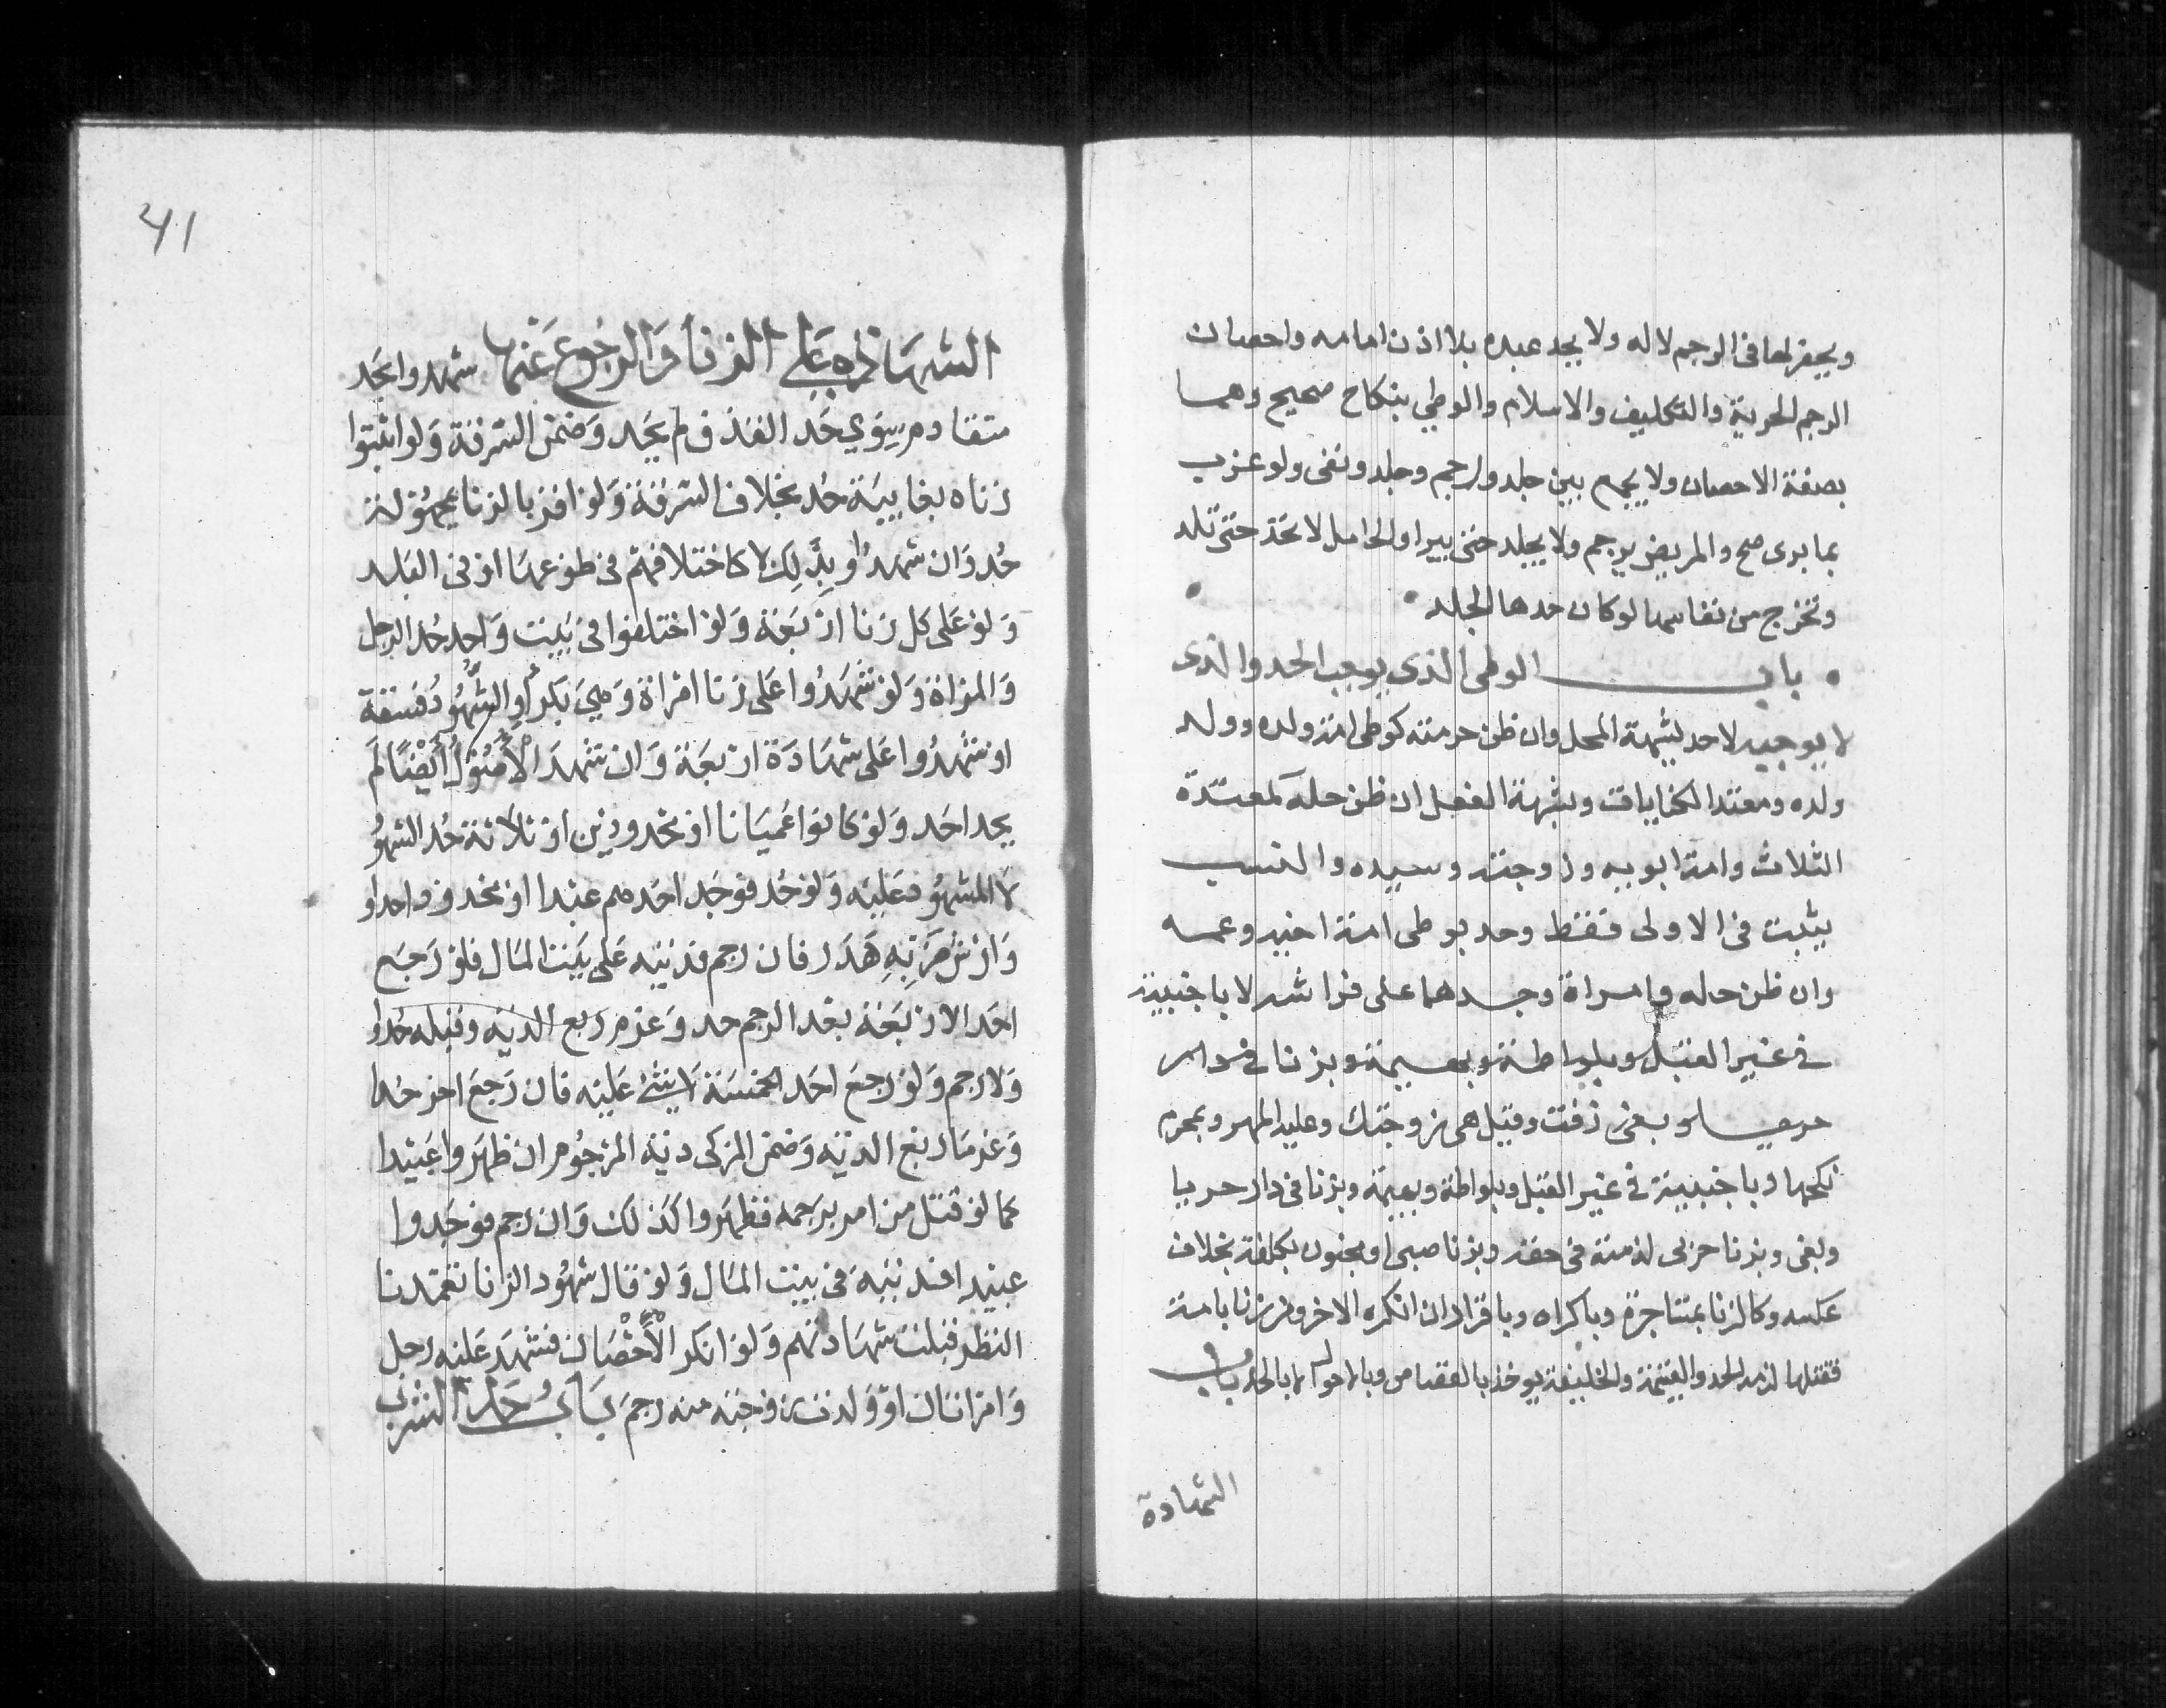 ويحفر لها فى الرجم لا له ولا يحد عبده بلا اذن امامه واحصان
الرجم الحرية والتكليف والاسلام والوطي بنكاح صحيح وهما
بصفة الاحصان ولا يجمع بين جلد ورجم وجلد ونفى ولو عزب
بما يرى صح والمريض يرجم ولا يجلد حتى يبرا والحامل لا تحد حتى تلد
وتخرج من نفاسها لو كان حدها الجلد
باب الوطى الذى يوجب الحد والذى
لا يوجبه لا حد بشبهة المحل وان ظن حرمته كوطى امة ولده وولد
ولده ومعتدة الكنايات وبشبهة الفعل ان ظن حله كمعتدة
الثلاث وامة ابويه وزوجته وسيده والنسب
يثبت فى الاولى فقط وحد بوطى امة اخيه وعمه
وان ظن حله وامراة وجدها على فراشه لا باجنبية
فى غير القبل وبلواطة وبهيمة وبزنا فى دار
حرب او بغى زفت وقيل هى زوجتك وعليه المهر وبمحرم
نكحها وباجنبية فى غير القبل وبلواطة وبهيمة وبزنا فى دار حرب
وبغى وبزنا حربى لذمية فى حقه وبزنا صبى او مجنون بكلفة بخلاف
عكسه وكالزنا بمستاجرة وباكراه وباقرار ان انكره الاخر ومن زنا بامة
فقتلها لزمه الحد والقيمة والخليفة يوخذ بالقصاص وبالاموال لا بالحد باب
الشهادة
41
الشهادة على الزنا والرجوع عنها شهدوا بحد
متقادم سوي حد القذف لم يحد وضمن السرقة ولو اثبتوا
زناه بغايبة حد بخلاف السرقة ولو اقر بالزنا بمجهولة
حد وان شهدوا بذلك لا كاختلافهم فى طوعها او فى البلد
ولو على كل زنا اربعة ولو اختلفوا فى بيت واحد حد الرجل
والمراة ولو شهدوا على زنا امراة وهي بكر او الشهود فسقة
او شهدوا على شهادة اربعة وان شهد الاصول ايضا لم
يحد احد ولو كانوا عميانا او محدودين او ثلاثة حد الشهو
لا المشهود عليه ولو حد فوجد احدهم عبدا او محدودا حدوا
وارش ضربه هدر فان رجم فديته على بيت المال فلو رجع
احد الاربعة بعد الرجم حد وغرم ربع الدية وقبله حدوا
ولا رجم ولو رجع احد الخمسة لا شئ عليه فان رجع اخر حدا
وغرما ربع الدية وضمن المزكى دية المرجوم ان ظهروا عبيدا
كما لو قتل من امر برجمه فظهروا كذلك وان رجم فوجدوا
عبيدا فديته فى بيت المال ولو قال شهود الزنا تعمدنا
النظر قبلت شهادتهم ولو انكر الاحصان فشهد عليه رجل
وامراتان او ولدت زوجته منه رجم باب حد الشرب